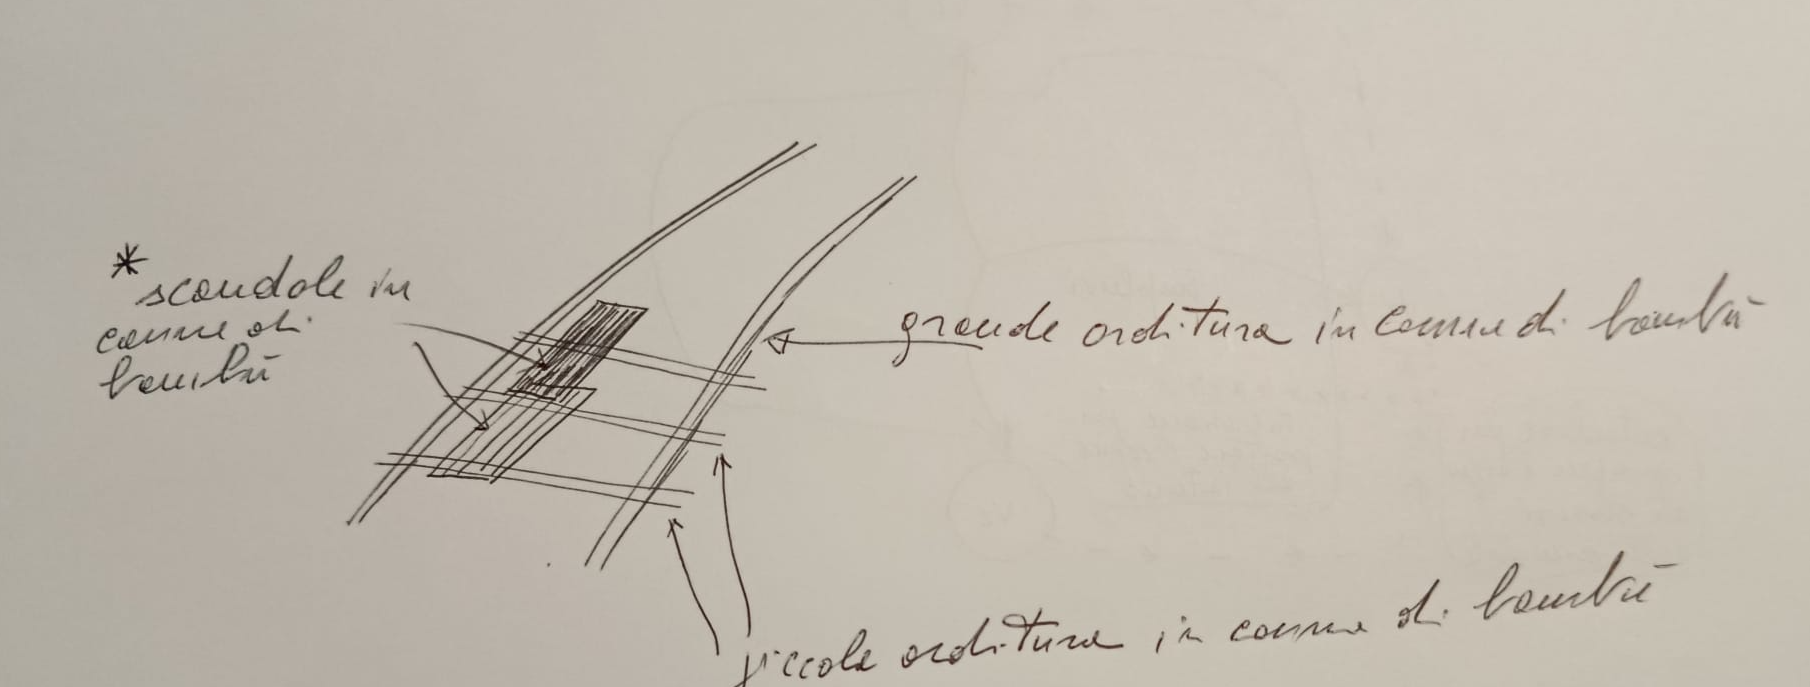 * scandole in
canne di
bambù
grande orditura in canne di bambù
piccola orditura in canne di bambù